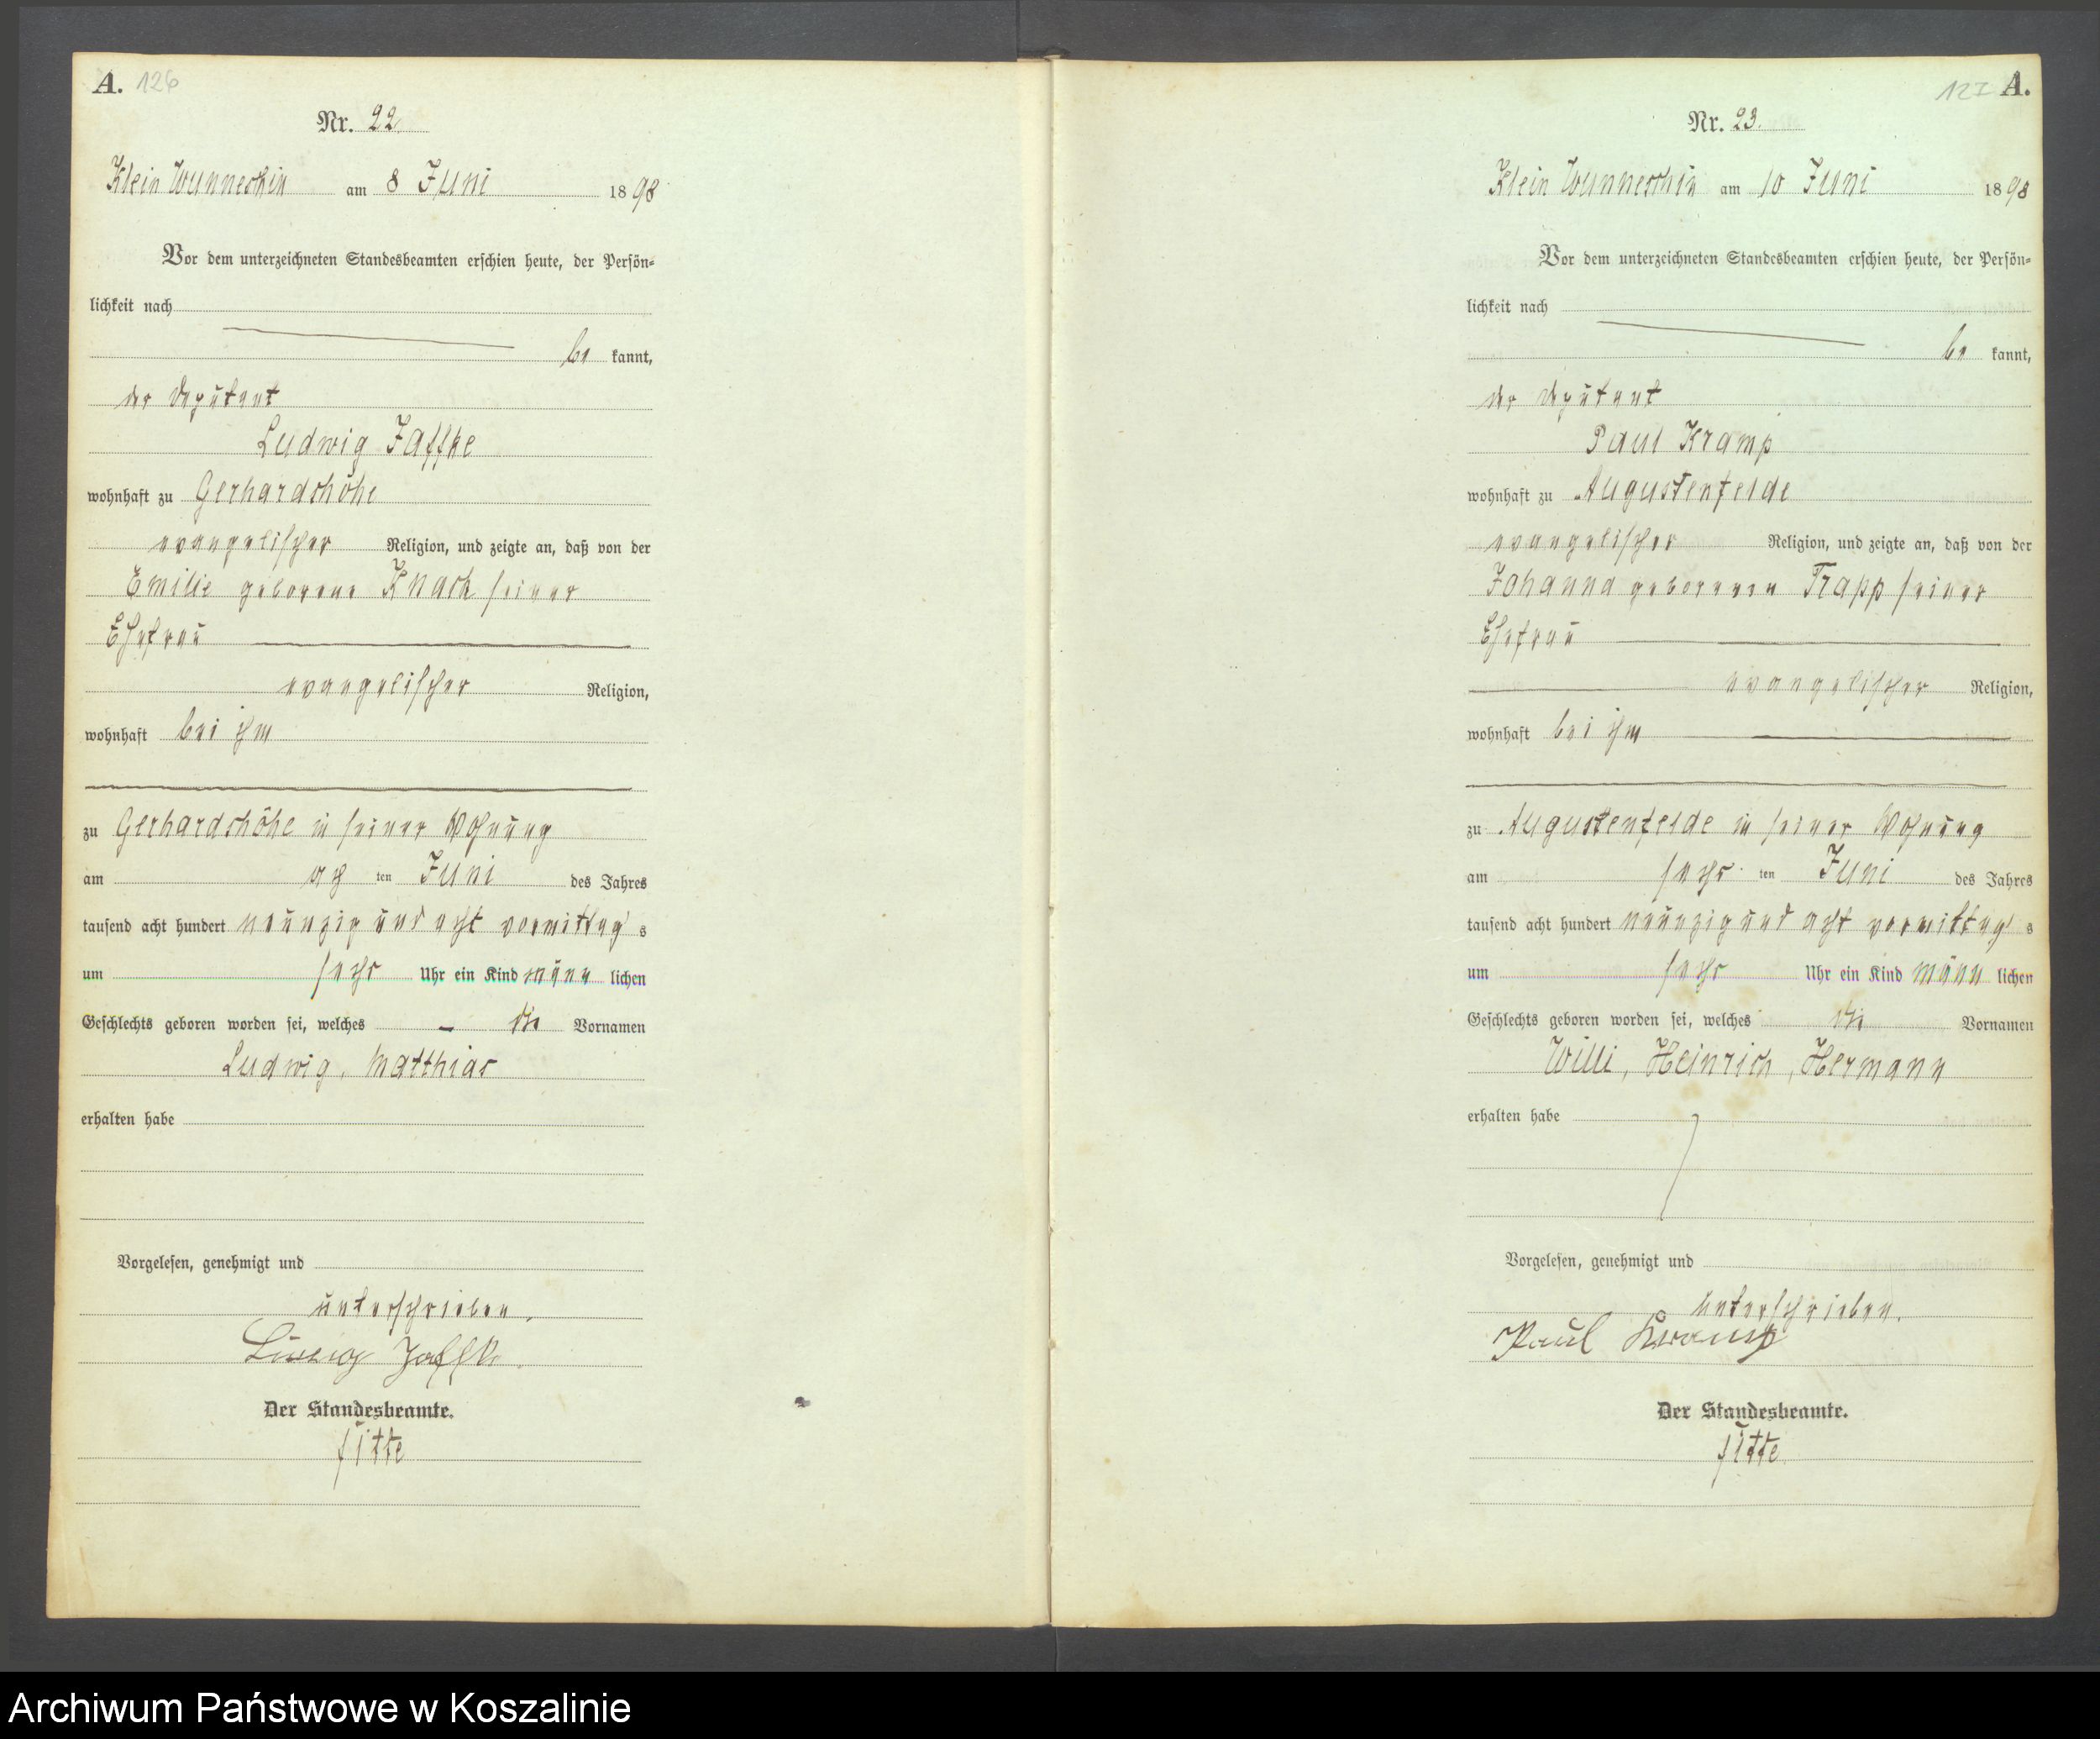 A. 126
Nr. 22.
Klein Wunneschin am 8 Juni 1898
Vor dem unterzeichneten Standesbeamten erschien heute, der Persön=
lichkeit nach
be kannt,
der Deputant
Ludwig Jaffke
wohnhaft zu Gerhardshöhe
evangelischer Religion, und zeigte an, daß von der
Emilie geborene Knack seiner
Ehefrau
evangelischer Religion,
wohnhaft bei ihm
zu Gerhardshöhe in seiner Wohnung
am ach ten Juni des Jahres
tausend acht hundert neunzig und acht vormittag s
um sechs Uhr ein Kind männ lichen
Geschlechts geboren worden sei, welches – die Vornamen
Ludwig, Matthias
erhalten habe
Vorgelesen, genehmigt und
unterschrieben.
Ludwig Jaffke
Der Standesbeamte.
127 A.
Nr. 23.
Klein Wunneschin am 10 Juni 1898
Vor dem unterzeichneten Standesbeamten erschien heute, der Persön=
lichkeit nach
be kannt,
der Deputant
Paul Kramp
wohnhaft zu Augustenfelde
evangelischer Religion, und zeigte an, daß von der
Johanna geborenen Trapp seiner
Ehefrau
evangelischer Religion,
wohnhaft bei ihm
zu Augustenfelde in seiner Wohnung
am sechs ten Juni des Jahres
tausend acht hundert neunzig und acht vormittag s
um sechs Uhr ein Kind männ lichen
Geschlechts geboren worden sei, welches die Vornamen
Willi, Heinrich, Hermann
erhalten habe
Vorgelesen, genehmigt und
unterschrieben.
Paul Kramp
Der Standesbeamte.
Archiwum Państwowe w Koszalinie